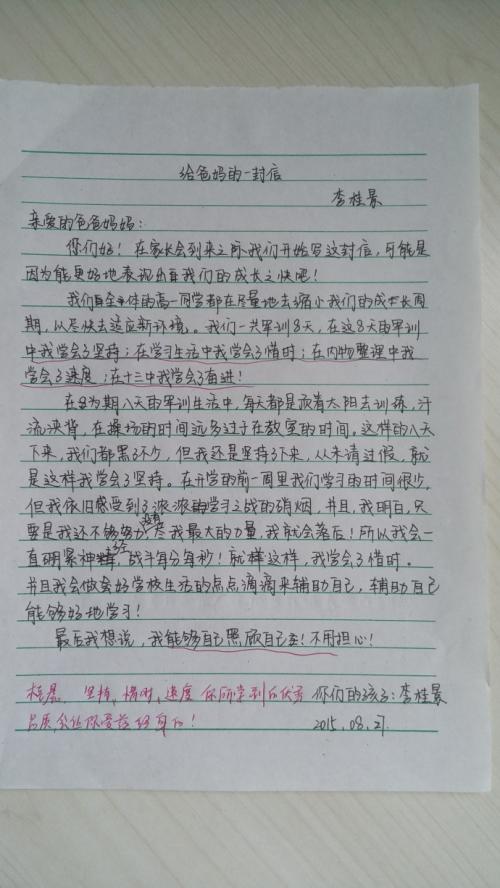 给爸妈的一封信
李桂景
亲爱的爸爸妈妈:
你们好!在家长会到来之际我们开始写这封信,可能是
因为能更好地表现出我们的成长之快吧!
我们全体的高一同学都在尽量地去缩小我们的成长周
期,从尽快去适应新环境。我们一共军训8天,在这8天的军训
中我学会了坚持;在学习生活中我学会了惜时;在内物整理中我
学会了速度;在十三中我学会了奋进!
在为期八天的军训生活中,每天都是顶着太阳去训练,汗
流浃背,在操场的时间远多过于在教室的时间。这样的八天
下来,我们都黑了不少,但我还是坚持了下来,从未请过假,就
是这样我学会了坚持。在开学的前一周里我们学习的时间很少,
但我依旧感受到了派派的学习之战的硝烟,并且,我明白,只
要是我还不够努力,尽我最大的力量,我就会落后!所以我会一
直绷紧神经,战斗每分每秒!就样这样,我学会了惜时。
并且我会做会好学校生活的点点滴滴来辅助自己,辅助自己
能够好地学习!
最后我想说,我能够自己照顾自己!不用担心!
坚持,惜时,速度 你所学到的优秀
品质,会让你受益终身的!
你们的孩子:李桂景
2015.08.27.